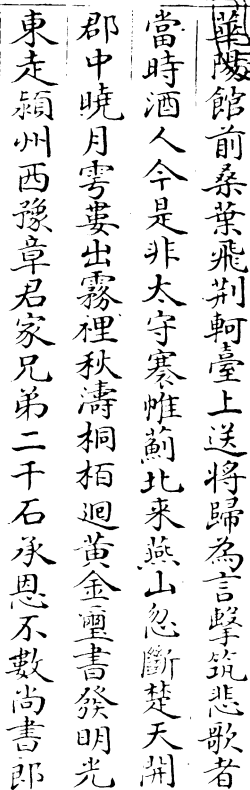 華陽館前桑葉飛荆軻臺上送將歸為言擊筑悲歌者
當時酒人今是非太守褰帷薊北来燕山忽斷楚天開
郡中曉月雩婁出霧裡秋濤桐栢迴黄金璽書發明光
東走潁州西豫章君家兄弟二千石承恩不數尚書郎